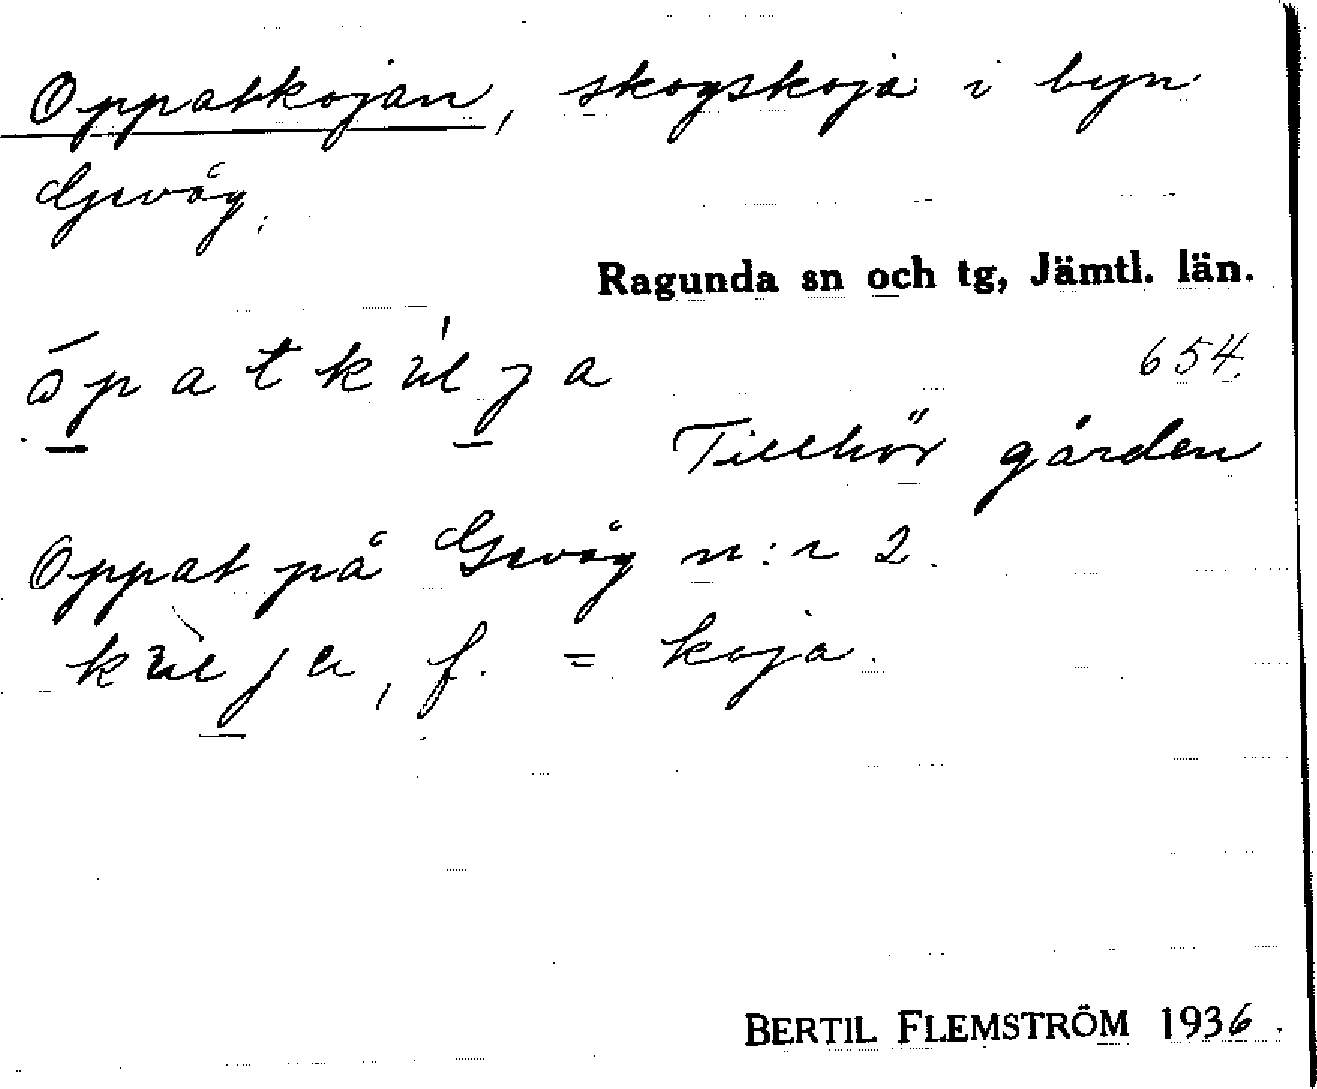 Oppatkojan, skogskoja i byn
Gevåg.
Ragunda sn och tg, Jämtl. län.
654.
Tillhör gården
Oppat på Gevåg n:r 2.
f. = koja.
BERTIL FLEMSTRÖM 1936.